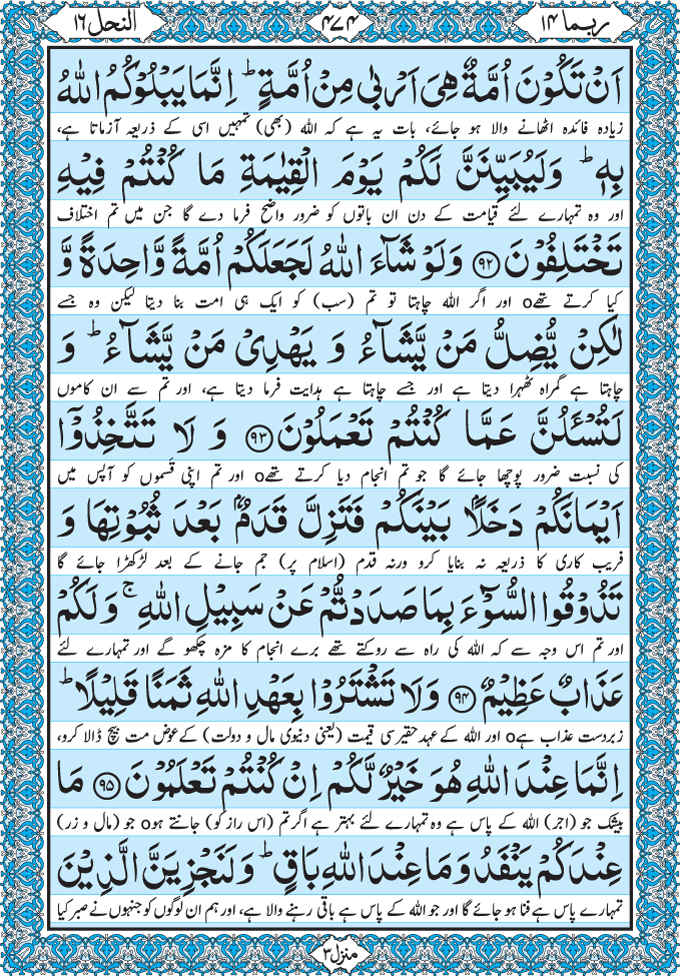 ربما ۱۴
۴۷۴
النحل ۱۶
اَنْ تَكُوْنَ اُمَّةٌ هِیَ اَرْبٰی مِنْ اُمَّةٍ ؕ اِنَّمَا یَبْلُوْكُمُ اللّٰهُ
زیادہ فائدہ اٹھانے والا ہو جائے، بات یہ ہے کہ اللہ (بھی) تمہیں اسی کے ذریعہ آزماتا ہے،
بِهٖ ؕ وَلَیُبَیِّنَنَّ لَكُمْ یَوْمَ الْقِیٰمَةِ مَا كُنْتُمْ فِیْهِ
اور وہ تمہارے لئے قیامت کے دن ان باتوں کو ضرور واضح فرما دے گا جن میں تم اختلاف
تَخْتَلِفُوْنَ ﴿۹۲﴾ وَلَوْ شَآءَ اللّٰهُ لَجَعَلَكُمْ اُمَّةً وَّاحِدَةً وَّ
کیا کرتے تھےo اور اگر اللہ چاہتا تو تم (سب) کو ایک ہی امت بنا دیتا لیکن وہ جسے
لٰكِنْ یُّضِلُّ مَنْ یَّشَآءُ وَ یَهْدِیْ مَنْ یَّشَآءُ ؕ وَ
چاہتا ہے گمراہ ٹھہرا دیتا ہے اور جسے چاہتا ہے ہدایت فرما دیتا ہے، اور تم سے ان کاموں
لَتُسْـَٔلُنَّ عَمَّا كُنْتُمْ تَعْمَلُوْنَ ﴿۹۳﴾ وَ لَا تَتَّخِذُوْۤا
کی نسبت ضرور پوچھا جائے گا جو تم انجام دیا کرتے تھےo اور تم اپنی قَسموں کو آپس میں
اَیْمَانَكُمْ دَخَلًۢا بَیْنَكُمْ فَتَزِلَّ قَدَمٌۢ بَعْدَ ثُبُوْتِهَا وَ
فریب کاری کا ذریعہ نہ بنایا کرو ورنہ قدم (اسلام پر) جم جانے کے بعد لڑکھڑا جائے گا
تَذُوْقُوا السُّوْٓءَ بِمَا صَدَدْتُّمْ عَنْ سَبِیْلِ اللّٰهِ ۚ وَلَكُمْ
اور تم اس وجہ سے کہ اللہ کی راہ سے روکتے تھے برے انجام کا مزہ چکھو گے اور تمہارے لئے
عَذَابٌ عَظِیْمٌ ﴿۹۴﴾ وَلَا تَشْتَرُوْا بِعَهْدِ اللّٰهِ ثَمَنًا قَلِیْلًا ؕ
زبردست عذاب ہےo اور اللہ کے عہد حقیر سی قیمت (یعنی دنیوی مال و دولت) کے عوض مت بیچ ڈالا کرو،
اِنَّمَا عِنْدَ اللّٰهِ هُوَ خَیْرٌ لَّكُمْ اِنْ كُنْتُمْ تَعْلَمُوْنَ ﴿۹۵﴾ مَا
بیشک جو (اجر) اللہ کے پاس ہے وہ تمہارے لئے بہتر ہے اگر تم (اس راز کو) جانتے ہوo جو (مال و زر)
عِنْدَكُمْ یَنْفَدُ وَمَا عِنْدَ اللّٰهِ بَاقٍ ؕ وَلَنَجْزِیَنَّ الَّذِیْنَ
تمہارے پاس ہے فنا ہو جائے گا اور جو اللہ کے پاس ہے باقی رہنے والا ہے، اور ہم ان لوگوں کو جنہوں نے صبر کیا
منزل ۳